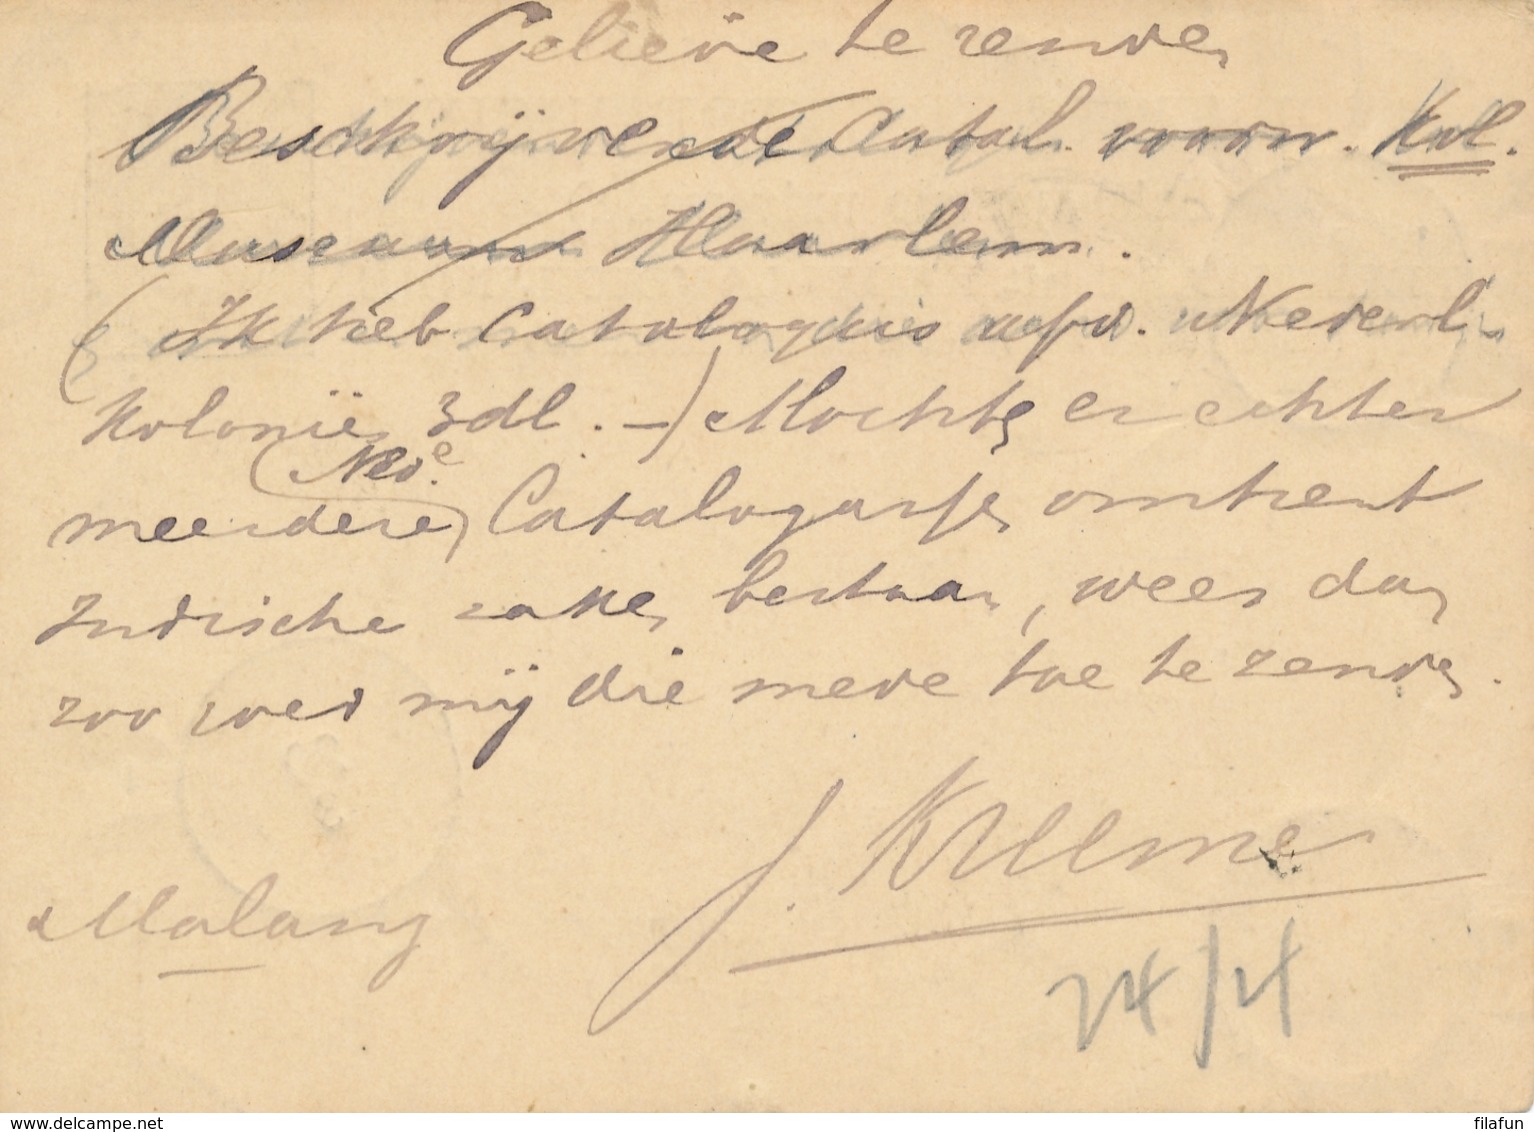 Gelieve te zenden
Beschrijvende Catal. voorw. Kol.
Museum Haarlem.
(Ik heb Catalogus afd. Nederl.
Koloniën 3dl. —) Mochten er echter
Nede.
meerdere Catalogussen omtrent
Indische zaken bestaan, wees dan
zoo goed mij die mede toe te zenden.
J. Kleemer
Malang
24/4
delcampe.net
filafun